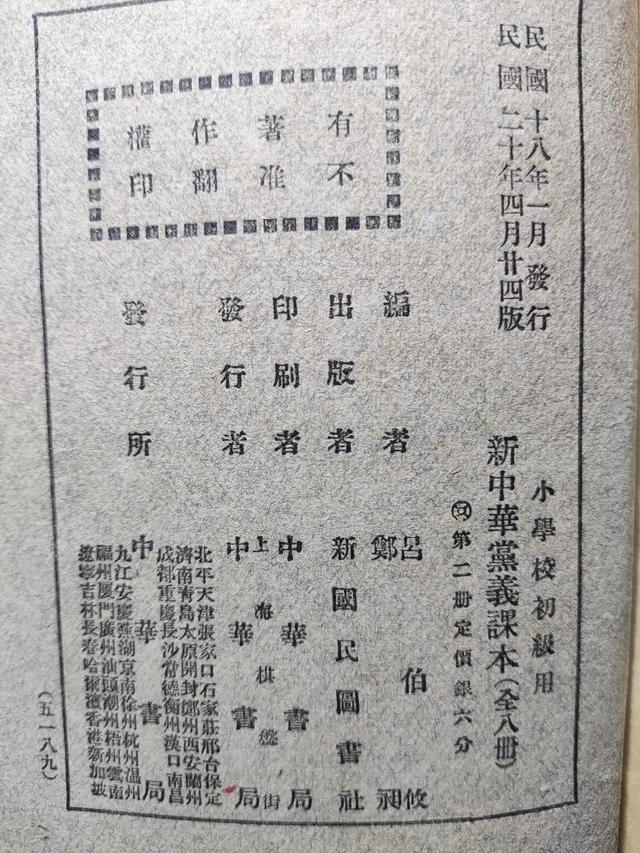 民國十八年一月發行
民國二十年四月廿四版
小學校初級用
新中華黨義課本(全八冊)
第二冊定價銀六分
有著作權
不准翻印
編者
呂伯攸
鄭昶
出版者
新國民圖書社
印刷者
中華書局
上海棋盤街
發行者
中華書局
發行所
中華書局
北平天津張家口石家莊邢台保定
濟南青島太原開封鄭州西安蘭州
成都重慶長沙常德衡州漢口南昌
九江安慶蕪湖南京徐州杭州溫州
福州廈門廣州汕頭潮州梧州雲南
遼寧吉林長春哈爾濱香港新加坡
(五一八九)